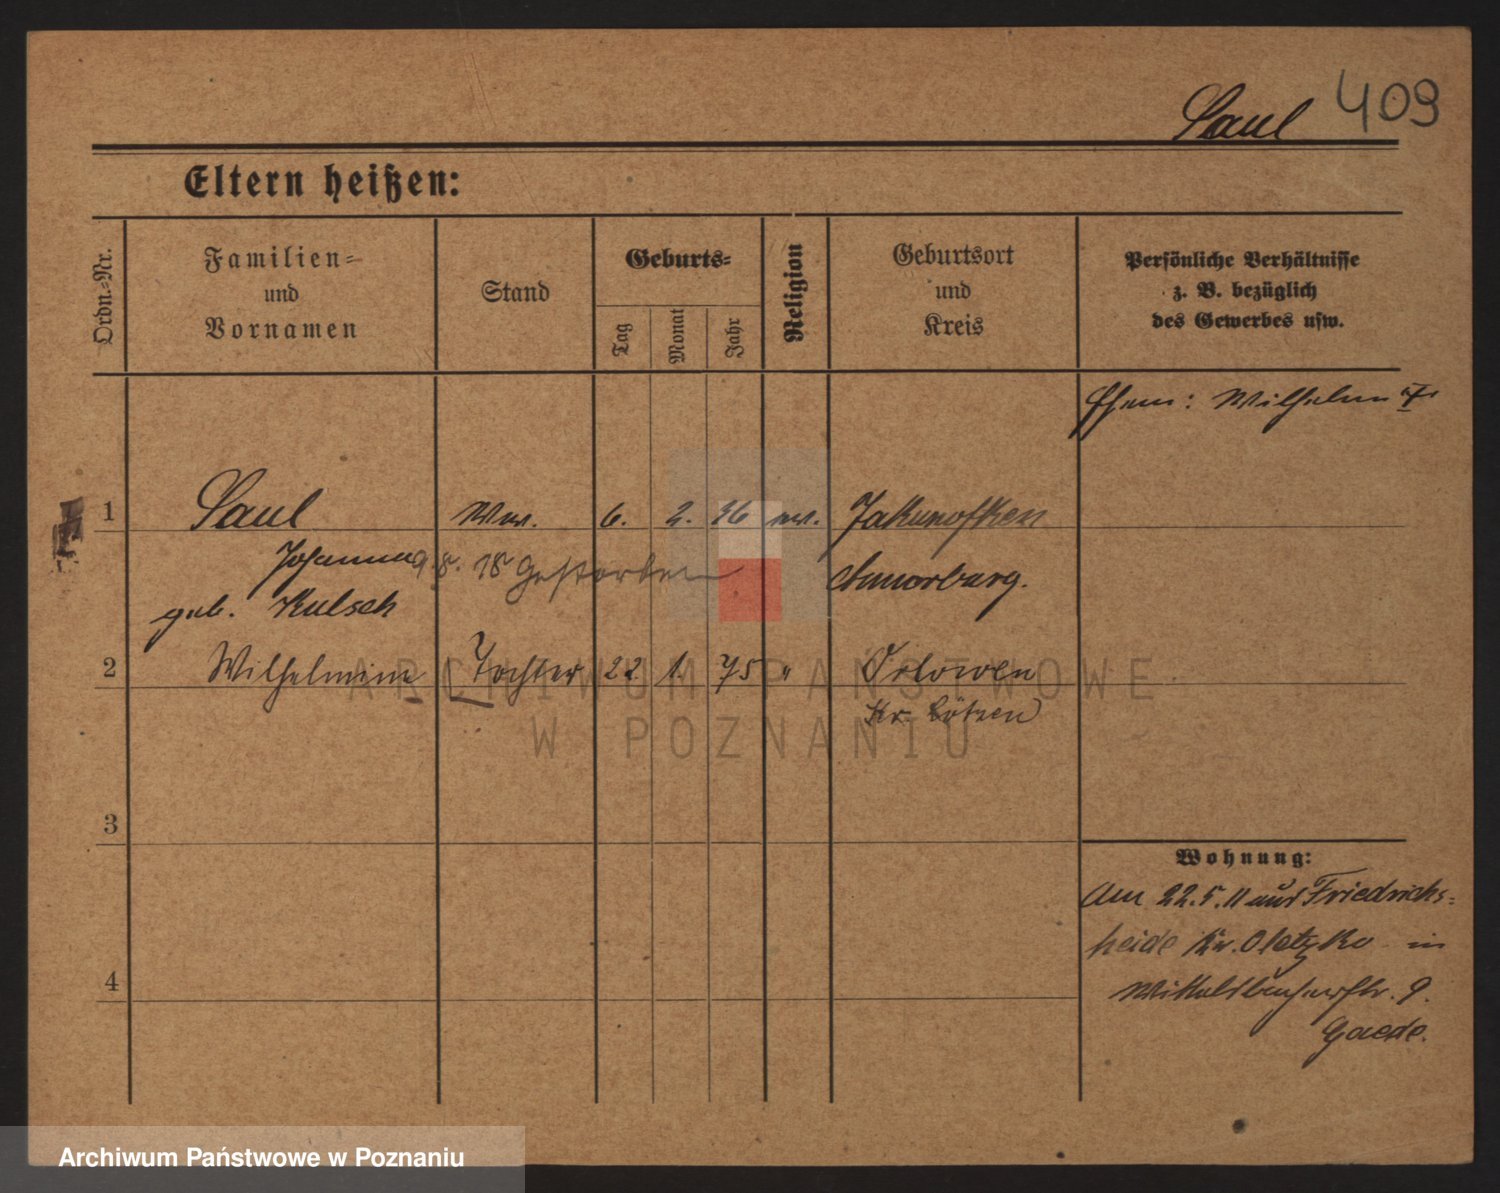 Saul 409
Eltern heißen:
Ordn.-Nr.
Familien-
und
Vornamen
Stand
Geburts-
Tag
Monat
Jahr
Religion
Geburtsort
und
Kreis
Persönliche Verhältnisse
z. B. bezüglich
des Gewerbes usw.
Ehem: Wilhelm †
1 Saul Ww. 6. 2. 36 ev. Jakunofken
Johanna 9.8.18 Gestorben Annorburg.
geb. Kulsch
2 Wilhelmine Tochter 22. 1. 75 " Orlowen
Kr. Lötzen
3
4
Wohnung:
Am 22.5.11 aus Friedrichs-
heide Kr. Oletzko in
Wittelsbacherstr. 9.
Gaede.
ARCHIWUM PAŃSTWOWE
W POZNANIU
Archiwum Państwowe w Poznaniu